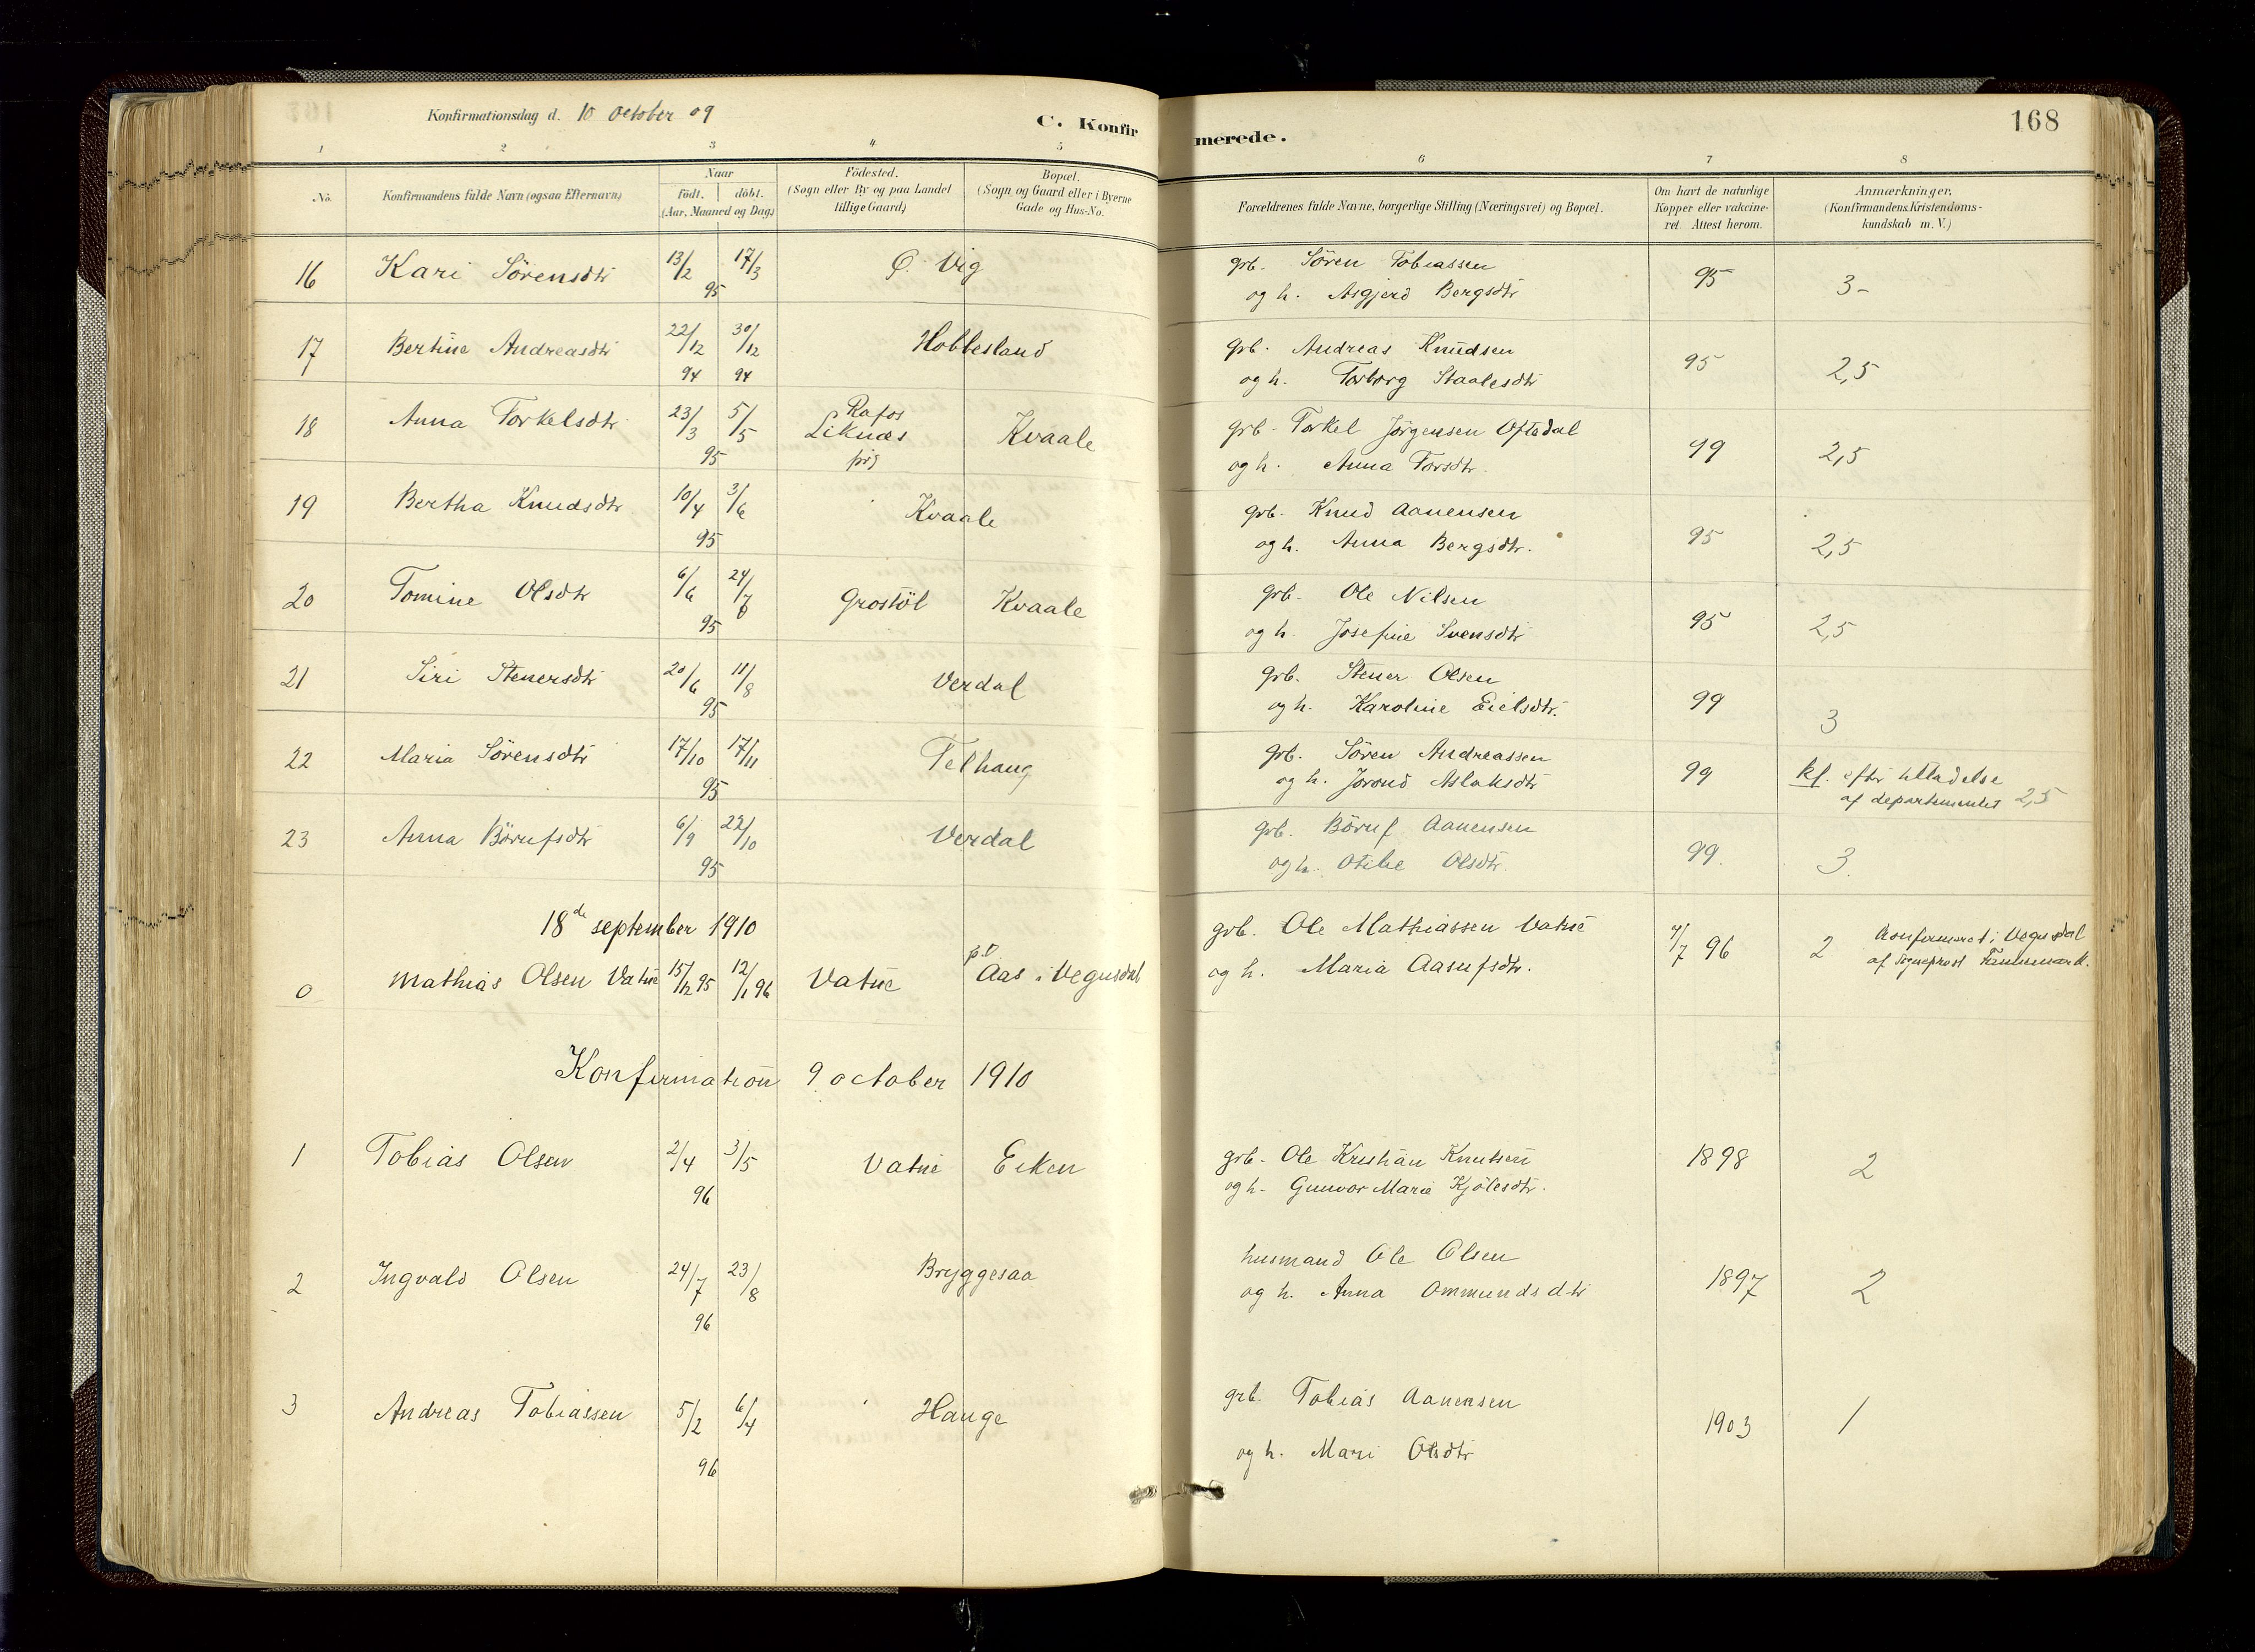 Konfirmationsdag d. 10 October 09
C. Konfir
merede.
168
1 2 3 4 5 6 7 8
No.
Konfirmandens fulde Navn (ogsaa Efternavn)
Naar
födt. döbt.
(Aar, Maaned og Dag)
Födested.
(Sogn eller By og paa Landet
tillige Gaard)
Bopæl.
(Sogn og Gaard eller i Byerne
Gade og Hus-No.
Forældrenes fulde Navne, borgerlige Stilling (Næringsvei) og Bopæl.
Om havt de naturlige
Kopper eller vakcine-
ret. Attest herom.
Anmærkninger,
(Konfirmandens Kristendoms-
kundskab m. V.)
16 Kari Sörensdtr 13/2 17/3 Ö. Vig grb. Sören Tobiassen 95 3-
95 og h. Asgjerd Bergsdtr
17 Bertine Andreasdtr 22/12 30/12 Hobbesland grb. Andreas Knudsen 95 2,5
94 94 og h. Torborg Staalesdtr
18 Anna Torkelsdtr 23/3 5/5 Rafos
Liknæs Kvaale grb. Torkel Jörgensen Oftedal 99 2,5
95 prg og h. Anna Torsdtr.
19 Bertha Knudsdtr 10/4 3/6 Kvaale grb. Knud Aanensen 95 2,5
95 og h. Anna Bergsdtr.
20 Tomine Olsdtr 6/6 24/7 Grostöl Kvaale grb. Ole Nilsen 95 2,5
95 og h. Josefine Svensdtr
21 Siri Stenersdtr 20/6 11/8 Verdal grb. Stener Olsen 99 3
95 og h. Karoline Eielsdtr.
22 Maria Sörensdtr 17/10 17/11 Telhaug grb. Sören Andreassen 99 kf. efter tilladelse
95 og h. Jorond Aslaksdtr af departementet 2,5
23 Anna Börufsdtr 6/9 22/10 Verdal grb. Böruf Aanensen 99. 3.
95 og h. Otilie Olsdtr.
18de september 1910
grb. Ole Mathiassen Vatne 4/7 96 2 Konfirmeret i Vegusdal
0 Mathias Olsen Vatne 15/12 95 12/1 96 Vatne p.t. Aas i Vegusdal og h. Maria Aasufsdtr. af Sogneprest
Konfirmation 9 october 1910
1 Tobias Olsen 2/4 3/5 Vatne Eiken grb. Ole Kristian Knutsen 1898 2
96 og h. Gunvor Marie Kjölesdtr.
2 Ingvald Olsen 24/7 23/8 Bryggesaa husmand Ole Olsen 1897 2
96 og h. Anna Ommundsdtr
3 Andreas Tobiassen 5/2 6/4 Hauge grb. Tobias Aanensen 1903 1
96 og h. Mari Olsdtr